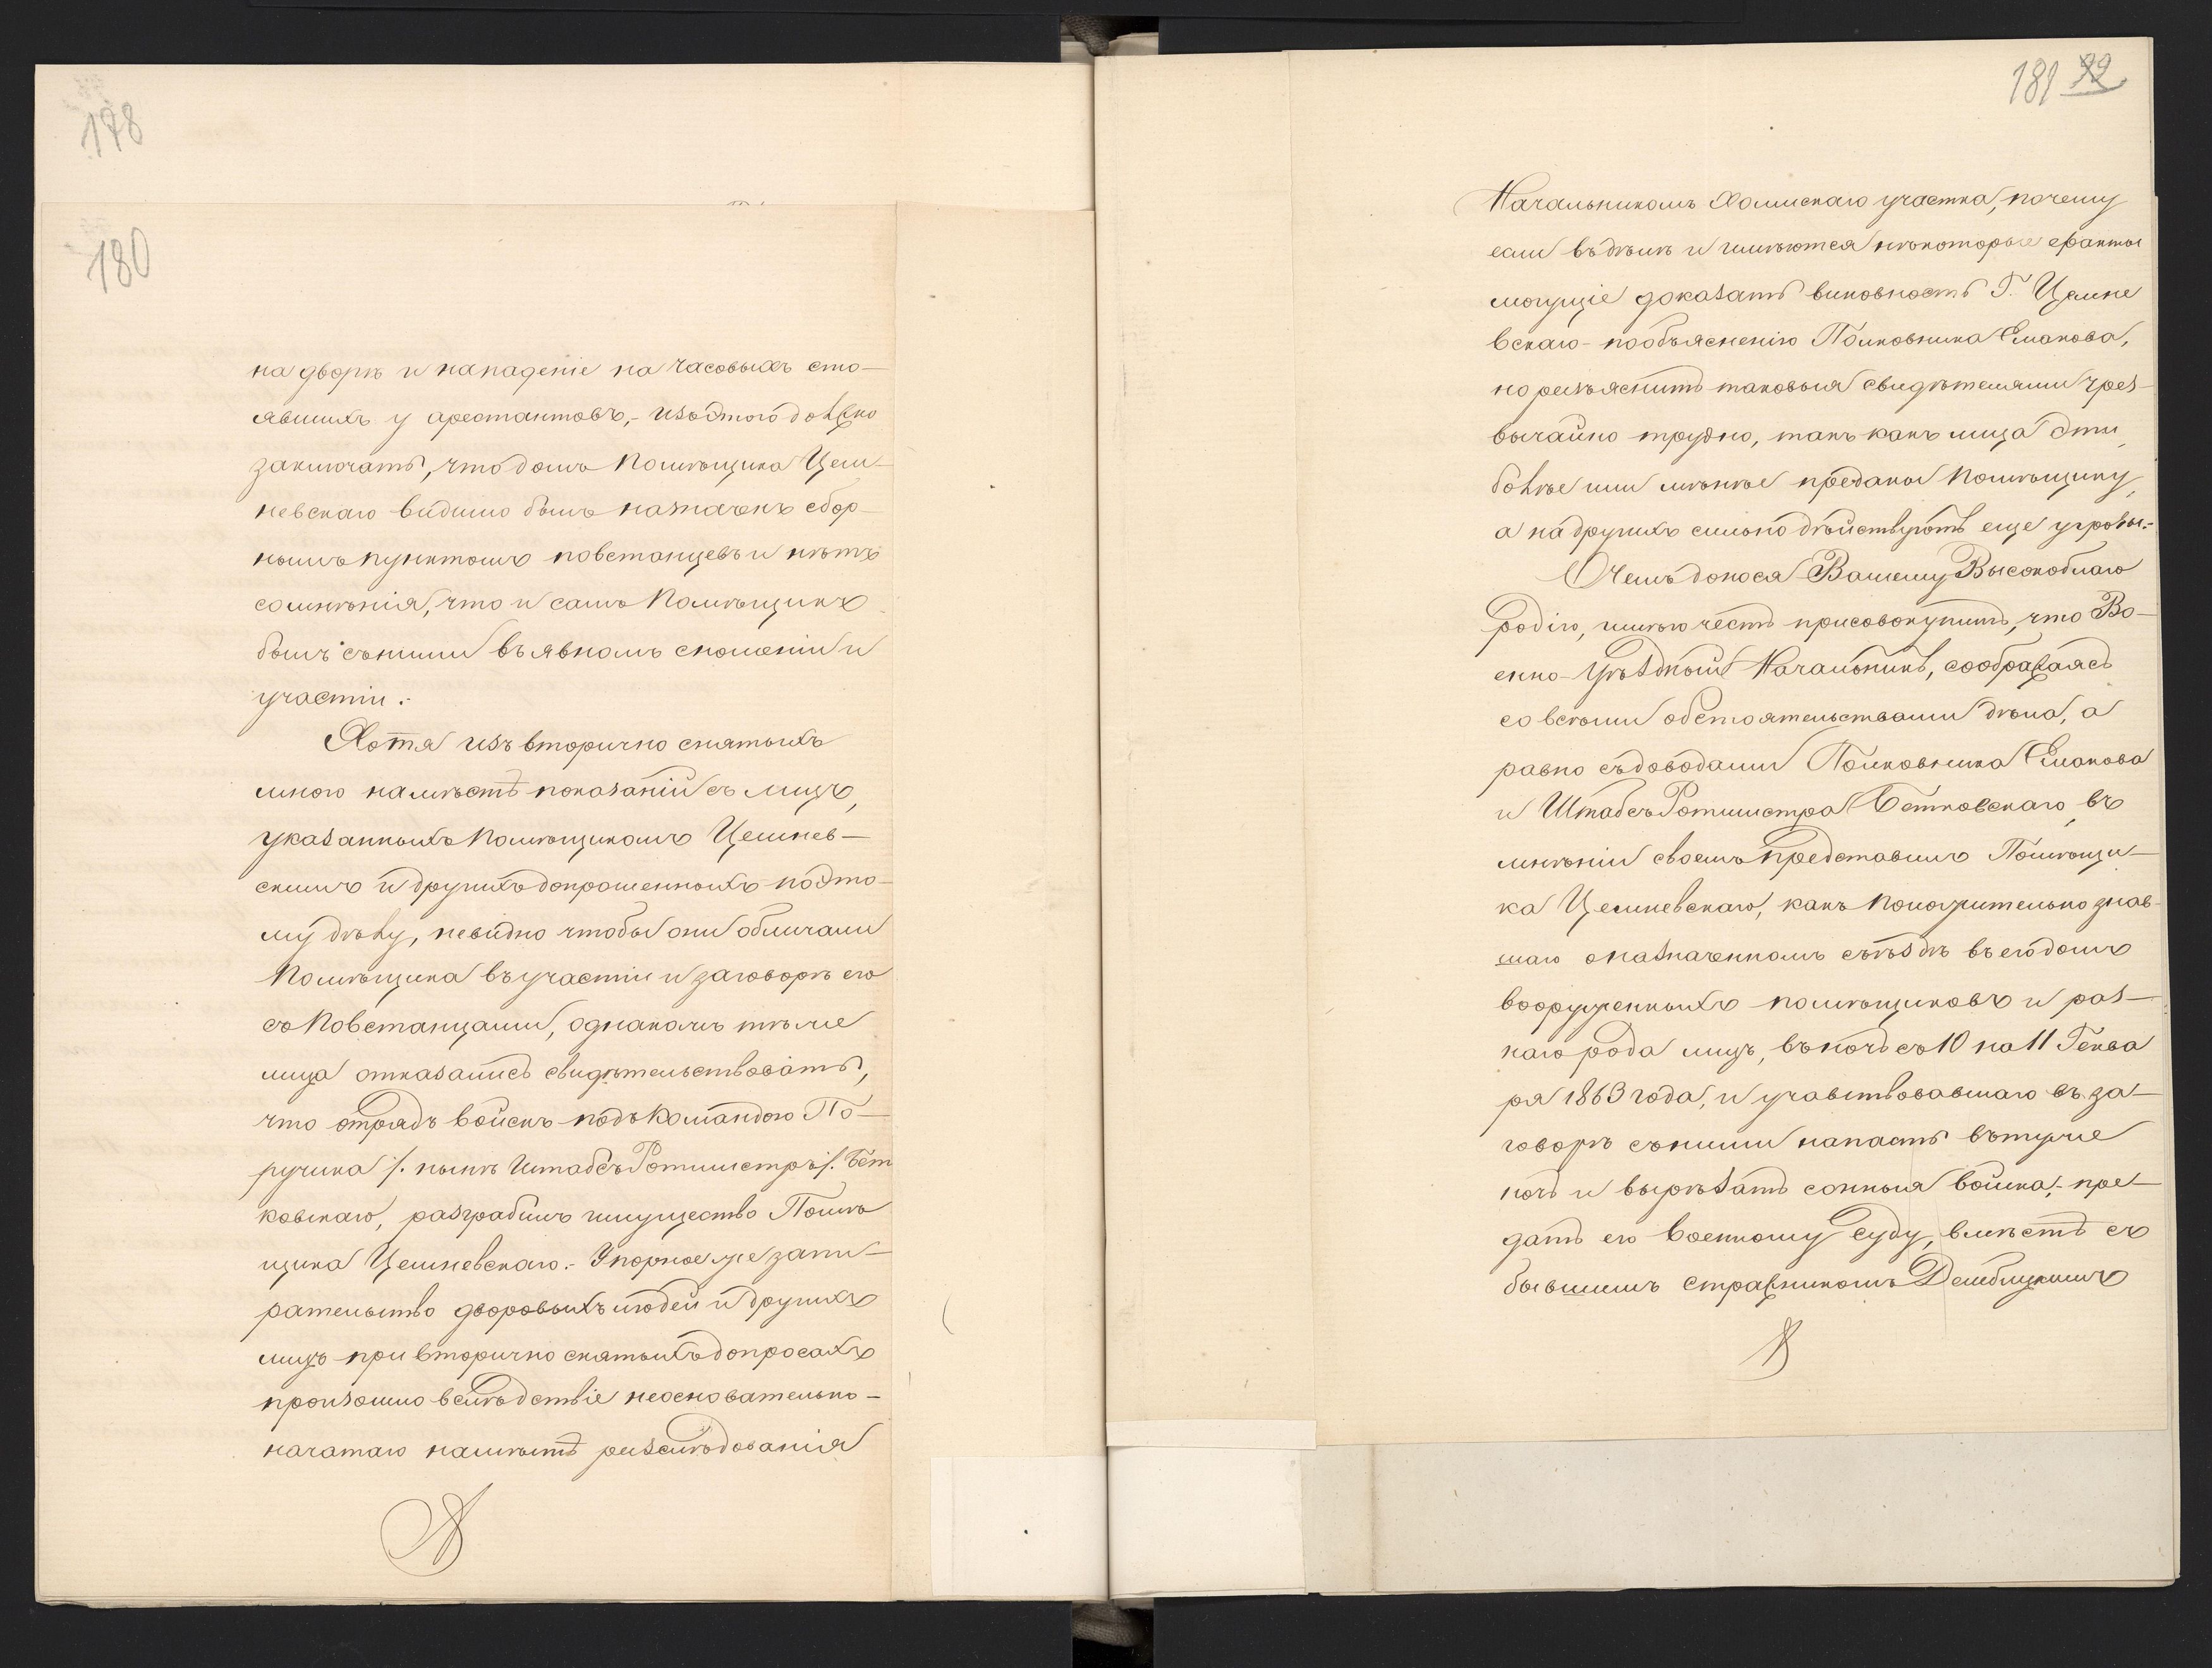 178
180
на дворѣ и нападеніе на часовыхъ сто-
явшихъ у арестантовъ,- изъ этого должно
заключать, что домъ помѣщика Цеш-
невскаго видимо былъ назначенъ сбор-
нымъ пунктомъ повстанцевъ и нѣтъ
сомнѣнія, что и самъ помѣщикъ
былъ съ ними въ явномъ сношеніи и
участіи.-
Хотя изъ вторично снятыхъ
мною на мѣстѣ показаній съ лицъ,
указанныхъ помѣщикомъ Цешнев-
скимъ и другихъ допрошенныхъ по это-
му дѣлу, невидно чтобы они обличали
помѣщика въ участіи и заговорѣ его
съ повстанцами, однакожъ тѣ же
лица отказались свидѣтельствовать,
что отрядъ войскъ подъ командою По-
ручика /. нынѣ Штабсъ Ротмистръ ./ Бѣт
ковскаго, разграбилъ имущество Помѣ
щика Цешневскаго.- Упорное же запи-
рательство дворовыхъ людей и другихъ
лицъ при вторично снятыхъ допросахъ
произошло вслѣдствіе неосновательно-
начатаго на мѣстѣ разслѣдованія
181 92
Начальникомъ Холмскаго участка, почему
если въ дѣлѣ и имѣются нѣкоторые факты
могущіе доказать виновность Г. Цешне
вскаго - по объясненію Полковника Емакова,
но разъяснить таковыя свидѣтелями чрез-
вычайно трудно, такъ какъ лица эти
болѣе или менѣе преданы помѣщику,
а на другихъ сильно дѣйствуютъ еще угрозы.-
О чемъ донося Вашему Высокоблаго
родію, имѣю честь присовокупить, что Во-
енно-Уѣздный Начальникъ, соображаясь
со всѣми обстоятельствами дѣла, а
равно съ доводами Полковника Емакова
и Штабсъ Ротмистра Бетковскаго, въ
мнѣніи своемъ представилъ Помѣщи-
ка Цешневскаго, какъ положительно знав-
шаго о назначенномъ съѣздѣ въ его домѣ
вооруженныхъ помѣщиковъ и раз-
наго рода лицъ, въ ночь съ 10 на 11 Генва
ря 1863 года, и учавствовавшаго въ за-
говорѣ съ ними напасть въ ту же
ночь и вырѣзать сонныя войска,- пре-
дать его военному суду, вмѣстѣ съ
бывшимъ стражникомъ Дембицкимъ